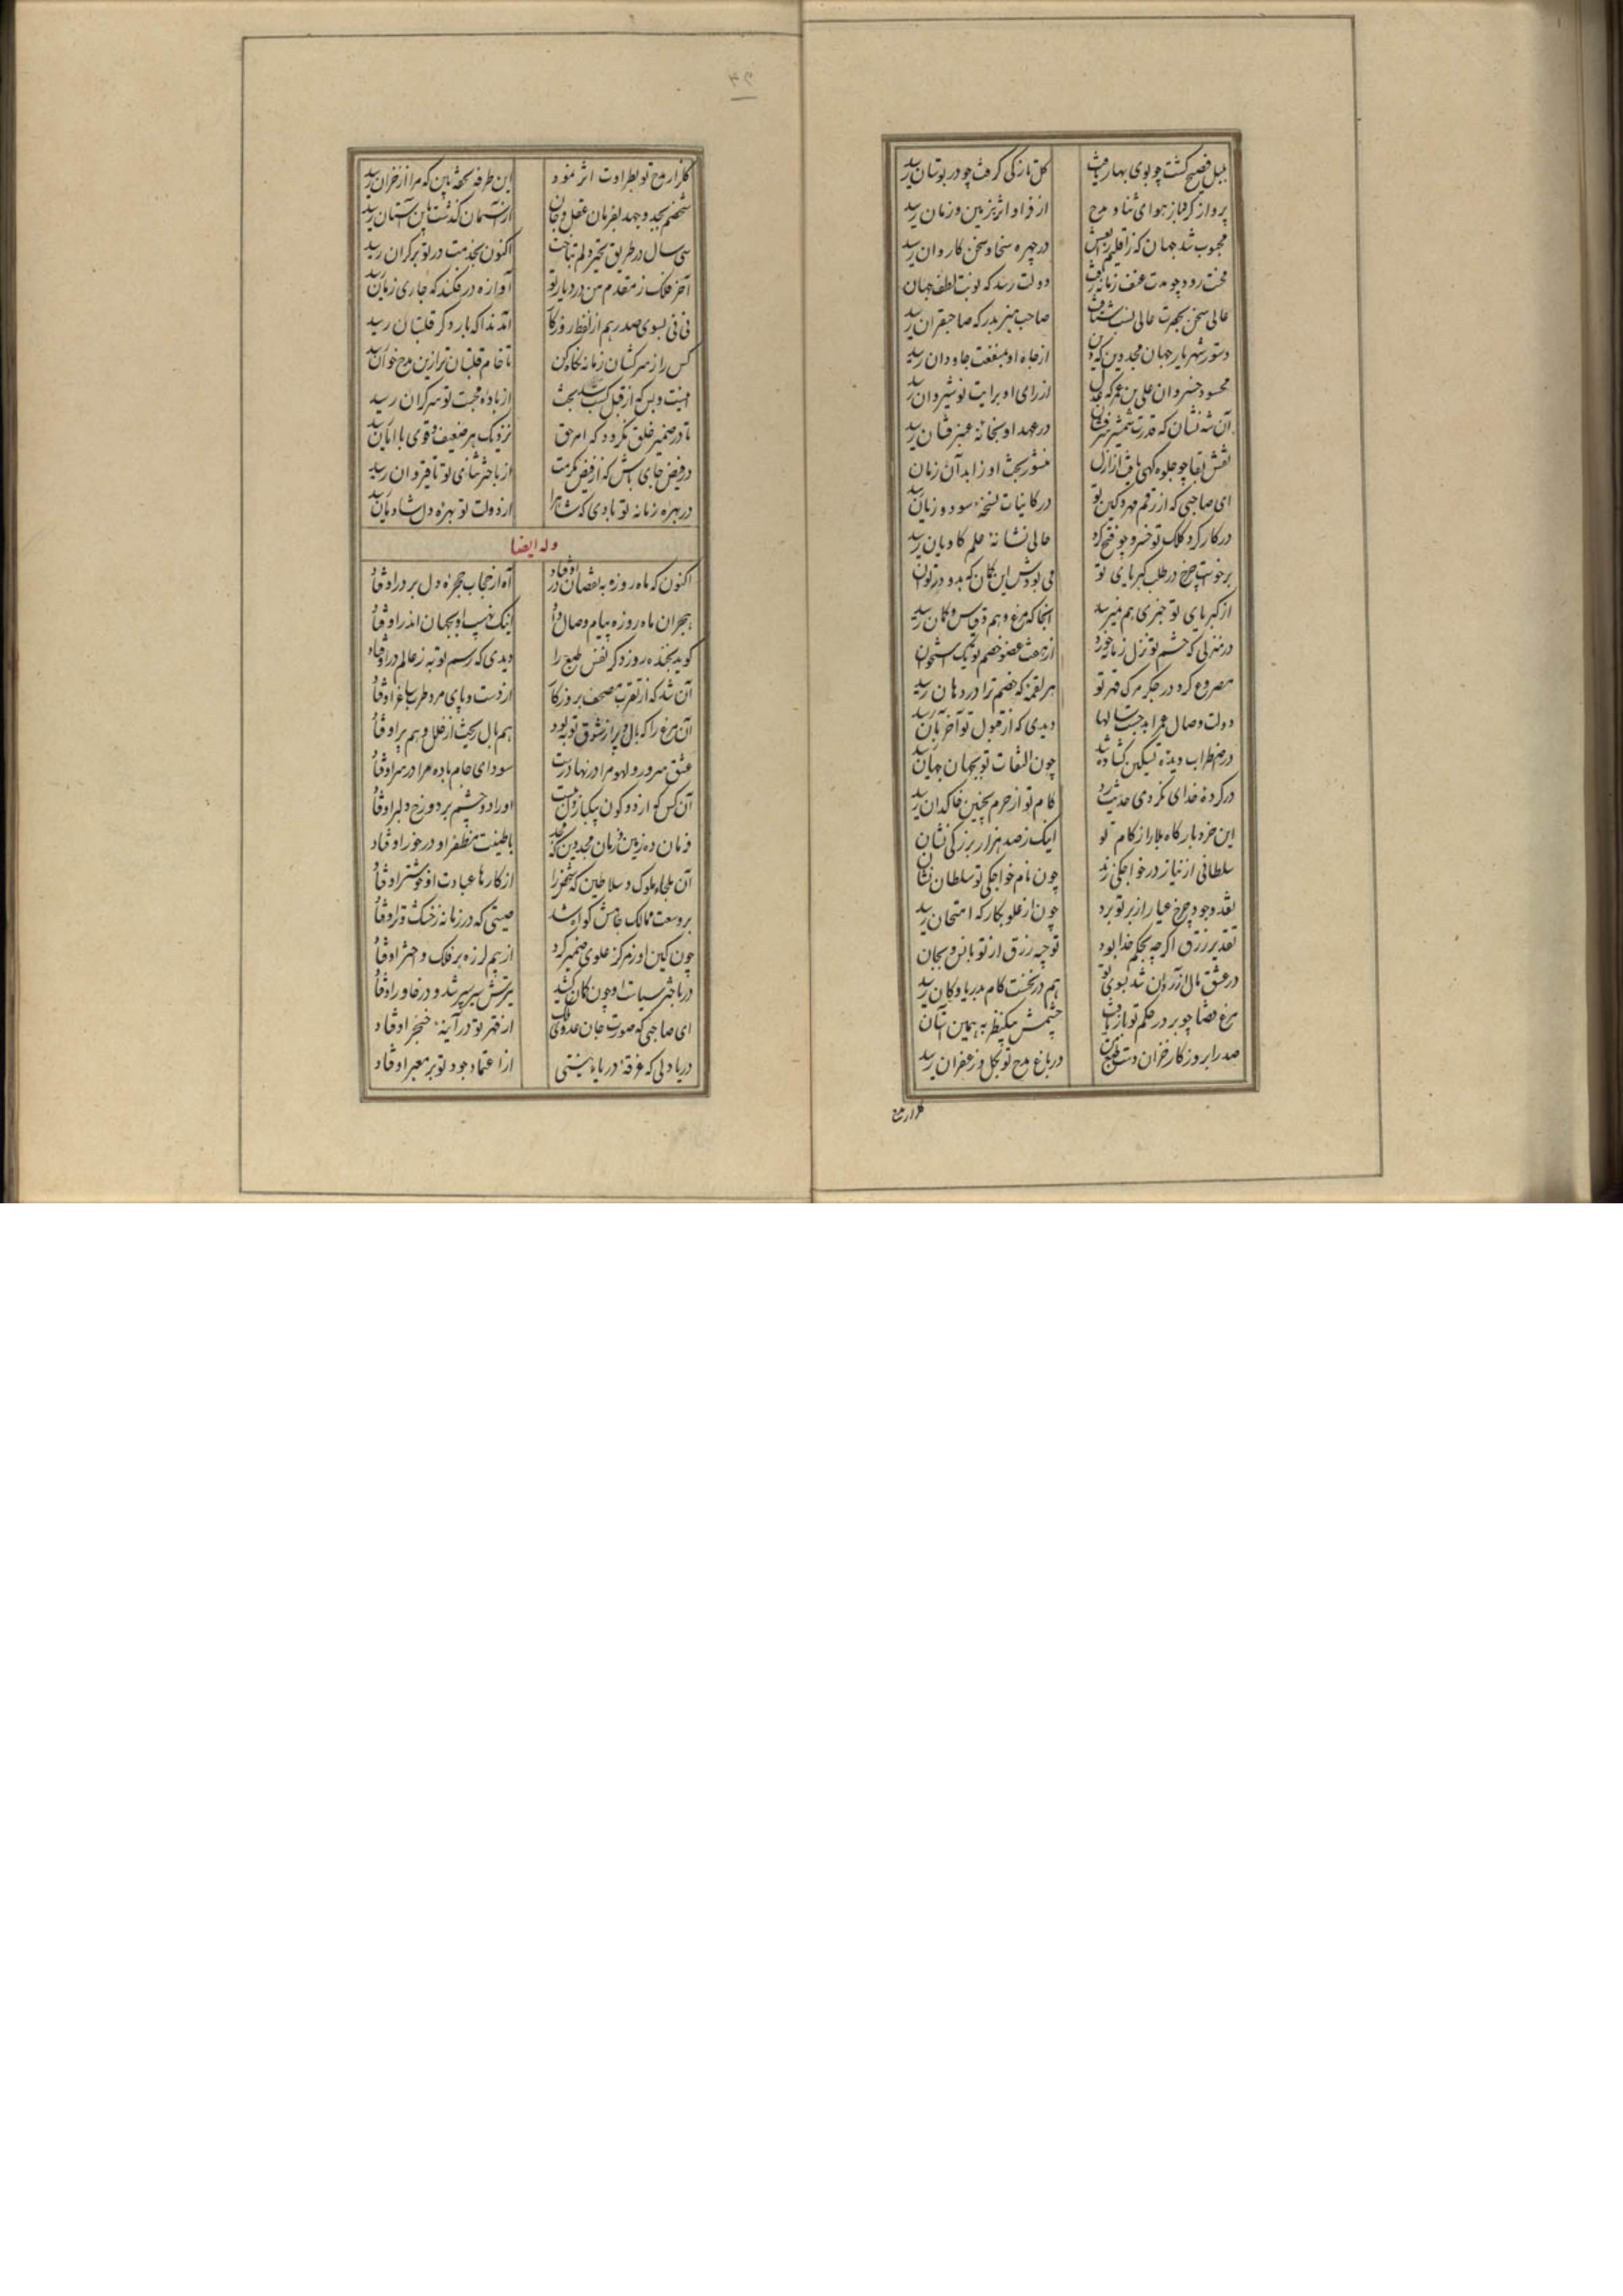 بلبل فصیح گشت چو بوی بهار یافت گل تازگی گرفت چو در بوستان رسید
پرواز کرد باز هوای ثنا و مدح از فر او اثر بزمین و زمان رسید
محبوب شد جهان که ز اقلیم در چهره سخا و سخن کاروان رسید
محنت رود چو مدت عنف زمانه رفت دولت رسد که نوبت لطف جهان رسید
عالی سخن بحضرت عالی نسب شتافت صاحب هنر بدرگه صاحبقران رسید
دستور شهریار جهان مجد دین که از جاه او منفعت جاودان رسید
محسود خسروان علی بن عمر که از رای او برایت نوشیروان رسید
آن شه نشان که قدرت شمشیر سرفشان در عهد او بخانه عنبر فشان رسید
نقش بقا چو جلوه گهی یافت از ازل منشور بخت او ز ابد آن زمان رسید
ای صاحبی که از رقم مهر و کین تو در کاینات نسخه سود و زیان رسید
در کار کرد کلک تو خسرو چو فتح کرد حالی نشانه علم کاویان رسید
برخاست چرخ در طلب کبریای تو می بودش این گمان که بدو در توان رسید
از کبریای تو خبری هم نمیرسد آنجا که مرغ وهم و قیاس و گمان رسید
در منزلی که خشم تو نزل زمانه خورد از هفت عضو خصم تو یک استخوان رسید
مصروع کرد در جگر مرگ قهر تو هر لقمه که خصم ترا در دهان رسید
دولت وصال عمر ابد جست سالها دیدی که از قبول تو آخر بآن رسید
در اضطراب دیده تسکین گشاده شد چون التفات تو بجهان جهان رسید
در گرده خدای نکردی حدیث رد کام تو از حرم بچنین خاکدان رسید
این خرد بارگاه بلا را ز کام تو اینک ز صد هزار بزرگی نشان رسید
سلطانی از نیاز در خواجگی زند چون نام خواجگی تو سلطان نشان رسید
نقد وجود چرخ عیار از بر تو برد چون از علو بکارگه امتحان رسید
تقدیر رزق اگر چه بحکم خدا بود توجیه رزق از تو بانس و بجان رسید
در عشق مال از آن شد بسوی تو هم در نخست گام بدریا و کان رسید
مرغ قضا چو بر در حکم تو بار یافت چشمش بیک نظر به همین آشیان رسید
صدرا بروزگار خزان دست طبع من در باغ مدح تو بگل و زعفران رسید
گلزار مدح
گلزار مدح تو بطراوت اثر نمود این طرفه تحفه بین که مرا از خزان رسید
شخصم بجد و جهد بفرمان عقل و جان از آسمان گذشت باین آستان رسید
سی سال در طریق تحیر دلم بتاخت اکنون بخدمت در تو بر کران رسید
آخر فلک ز مقدم من در دیار تو آوازه در فکند که جاری زبان رسید
نی نی بسوی صدر هم از لفظ روزگار آمد ندا که بار دگر قلتبان رسید
کس را ز سرکشان زمانه نگاه کن تا خام قلتبان تر ازین مدح خوان رسید
اینت و بس که از قبل بخت از باده محبت تو سرگران رسید
تا در ضمیر خلق نگردد که امر حق نزدیک هر ضعیف و قوی با امان رسید
در فیض جای باش که از فیض مکرمت از باختر ثنای تو تا قیروان رسید
در بهره زمانه تو بادی که مر ترا از دولت تو بهره دل شادمان رسید
وله ایضا
اکنون که ماه روزه به نقصان در اوفتاد آه از حجاب حجره دل بر در اوفتاد
هجران ماه روزه پیام وصال داد اینک نهیب او بجهان اندر اوفتاد
گوید بخنده روز دگر نفس طبع را دیدی که رسم توبه ز عالم در اوفتاد
آن شد که از تقرب مصحف بروزگار از دست و پای مرد طرب ساغر اوفتاد
آن مرغ را که بال و پر از شوق توبه بود هم بال ریخت از خلل و هم پر اوفتاد
عشق سرور و لهو مرا در نهاد رست سودای جام باده مرا در سر اوفتاد
آن کس کو از دو کون بیکبار اورا دو چشم بر دو رخ دلبر اوفتاد
فرمان ده زمین و زمان مجد دین که با طینت مظفر او در خور اوفتاد
آن ملجاء ملوک و سلاطین که شخص را از کارها عبادت او خوشتر اوفتاد
بر وسعت ممالک جاهش گواه شد صیتی که در زمانه ز خشک و تر اوفتاد
چون کین او ز مرکز علوی ضمیر کرد از بیم لرزه بر فلک و اختر اوفتاد
در باختر سیاست او چون کمان کشید تیرش سپر سپر شد و در خاور اوفتاد
ای صاحبی که صورت جان عدوی ملک از قهر تو در آینه خنجر اوفتاد
دریا دلی که غرقه دریای نیستی از اعتماد جود تو بر معبر اوفتاد